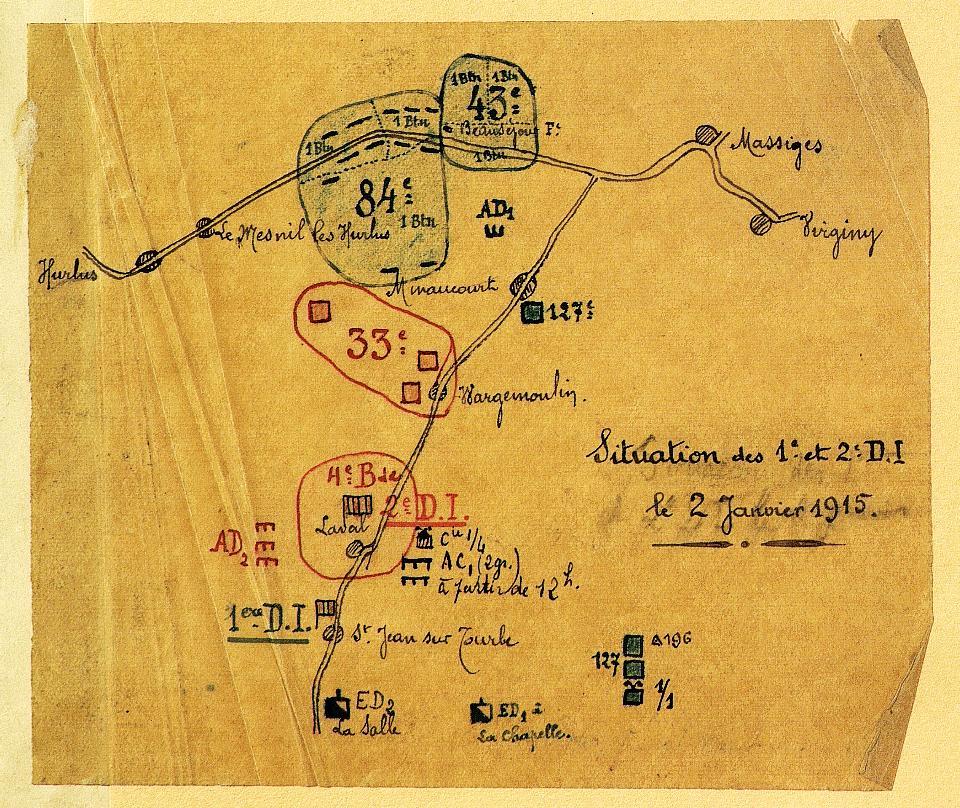 1 Btn 1 Btn
43e
Beauséjour Fe
1 Btn
1 Btn
1 Btn
84e
1 Btn
Massiges
Virginy
AD1
Le Mesnil les Hurlus
Hurlus
Minaucourt
127e
33e
Wargemoulin.
Situation des 1e et 2e D.I
le 2 Janvier 1915.
4e Bde
2e D.I.
Laval
AD2
Cie 1/4
AC1 (2gr.)
à partir de 12h.
1ere D.I.
St Jean sur Turbe
127
196
1/1
ED2
La Salle
ED1
La Chapelle.